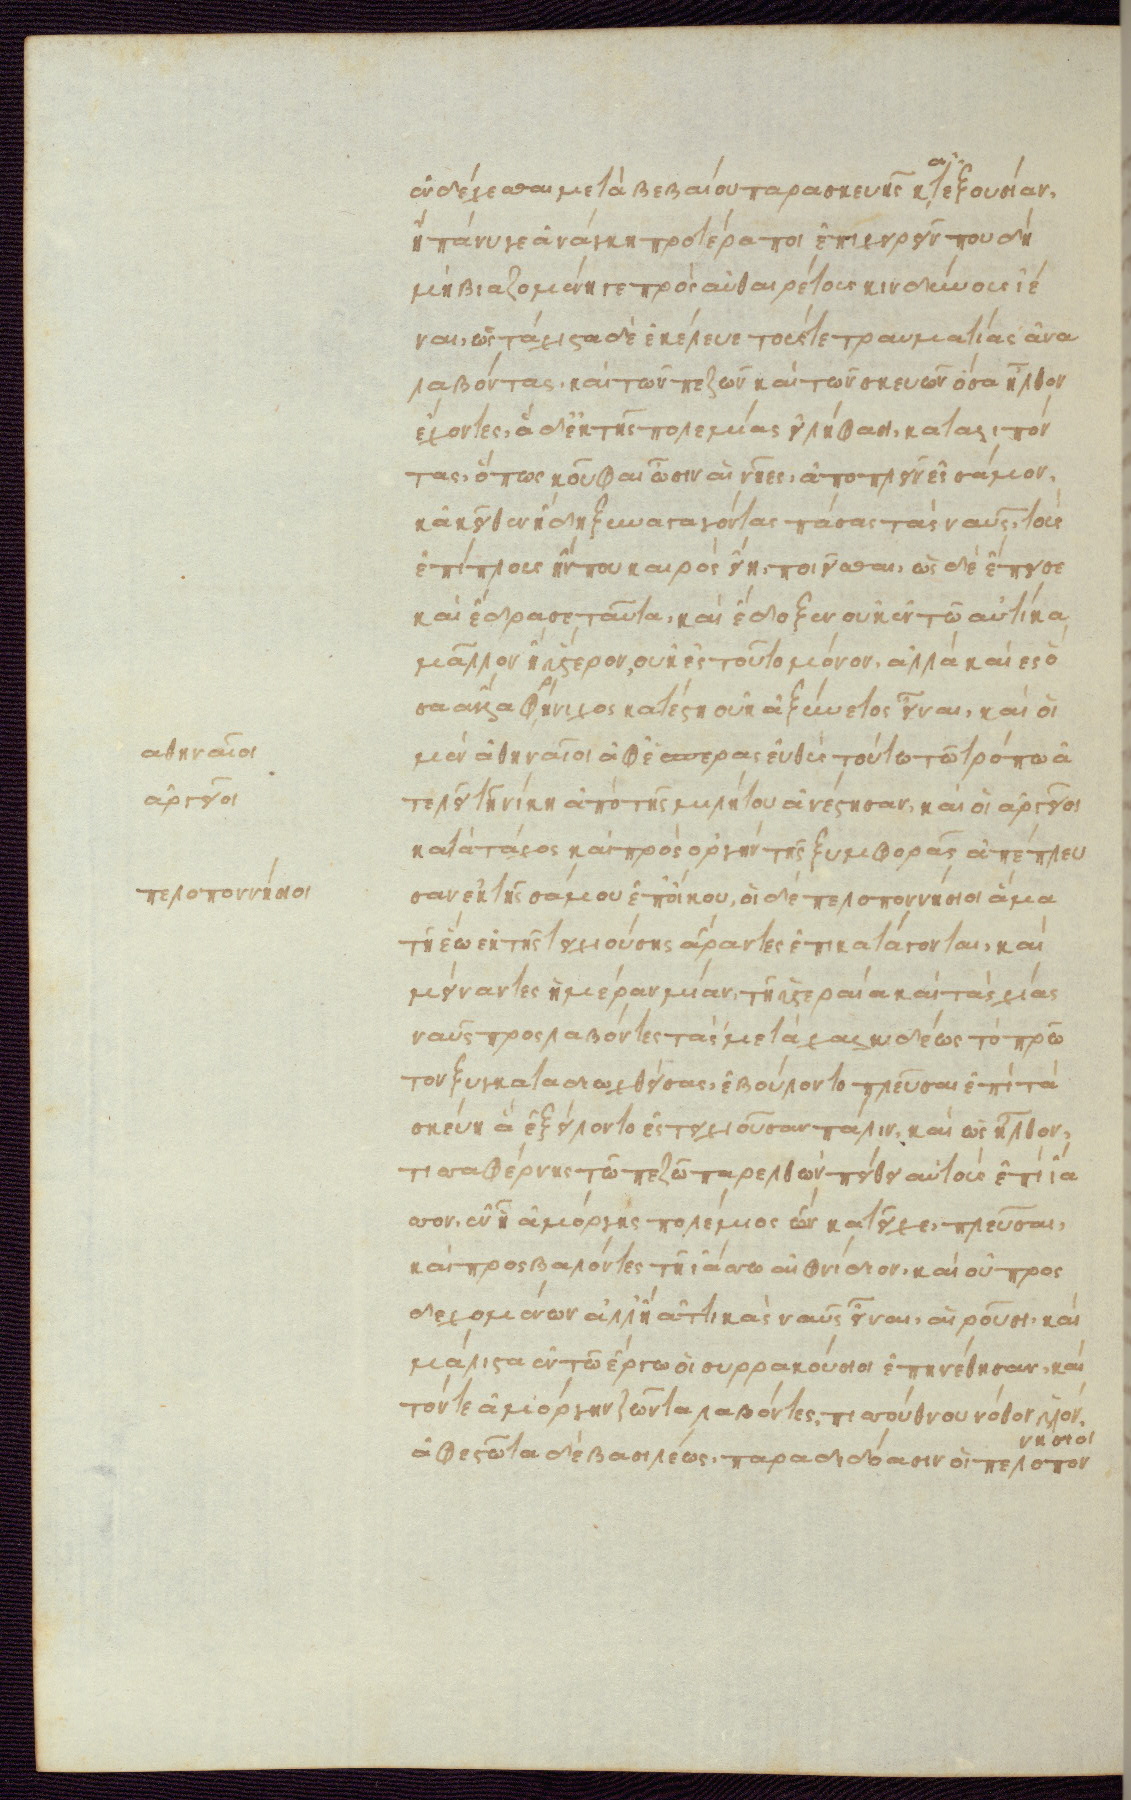 ἐνδέχεσθαι μετὰ βεβαίου παρασκευῆς καθ' ἑξουσίαν,
ἢ πάνυ γε ἀνάγκη προτέρα ποι ἐπιχειρεῖν που δὴ
μὴ βιαζομένη γε πρὸς αὐθαιρέτους κινδύνους ἰέ
ναι, ὡς τάχιστα δὲ ἐκέλευε τούς τε τραυματίας ἀνα
λαβόντας, καὶ τῶν πεζῶν καὶ τῶν σκευῶν ὅσα ἦλθον
ἔχοντες, ἃ δ' ἐκ τῆς πολεμίας εἰλήφασι, καταλιπόν
τας, ὅπως κοῦφαι ὦσιν αἱ νῆες, ἀποπλεῖν ἐς σάμον,
κἀκεῖθεν ἤδη ξυναγαγόντας πάσας τὰς ναῦς, τοὺς
ἐπίπλους ἤν που καιρὸς εἴη, ποιεῖσθαι, ὡς δὲ ἔπεισε
καὶ ἔδρασε ταῦτα, καὶ ἔδοξεν οὐκ ἐν τῶ αὐτίκα
μᾶλλον ἢ ὕστερον, οὐκ ἐς τοῦτο μόνον, ἀλλὰ καὶ ες ὅ
σα ἄλλα φρύνιχος κατέστη οὐκ ἀξύνετος εἶναι, καὶ οἱ
μὲν ἀθηναῖοι ἀφ' ἑσπέρας εὐθὺς τούτω τῶ τρόπω ἀ
τελεῖ τῆ νίκη ἀπὸ τῆς μιλήτου ἀνέστησαν, καὶ οἱ ἀργεῖοι
κατὰ τάχος καὶ πρὸς ὀργὴν τῆς ξυμφορᾶς ἀπέπλευ
σαν ἐκ τῆς σάμου ἐπ' οἴκου, οἱ δὲ πελοποννήσιοι ἅμα
τῆ ἕω ἐκ τῆς τειχιούσης ἄραντες ἐπικατάγονται, καὶ
μείναντες ἡμέραν μίαν, τῆ ὑστεραία καὶ τὰς χίας
ναῦς προσλαβόντες τὰς μετὰ χαλκιδέως τὸ πρῶ
τον ξυγκαταδιωχθείσας, ἐβούλοντο πλεῦσαι ἐπὶ τὰ
σκεύη ἃ ἐξείλοντο ἐς τειχιοῦσαν πάλιν, καὶ ὡς ἦλθον,
τισσαφέρνης τῶ πεζῶ παρελθὼν πείθει αὐτοὺς ἐπὶ ἴα
σον, ἐν ἧ ἀμόργης πολέμιος ὢν κατεῖχε, πλεῦσαι,
καὶ προσβαλόντες τῆ ἰάσω αἰφνίδιον, καὶ οὐ προσ
δεχομένων ἀλλ' ἢ ἀττικὰς ναῦς εἶναι, αἱροῦσι, καὶ
μάλιστα ἐν τῶ ἔργω οἱ συρρακούσιοι ἐπηνέθησαν, καὶ
τόν τε ἀμόργην ζῶντα λαβόντες, πισσούθνου νόθον υἱόν,
ἀφεστῶτα δὲ βασιλέως, παραδιδόασιν οἱ πελοπον
νήσιοι
αθηναῖοι
ἀργεῖοι
πελοποννήσιοι